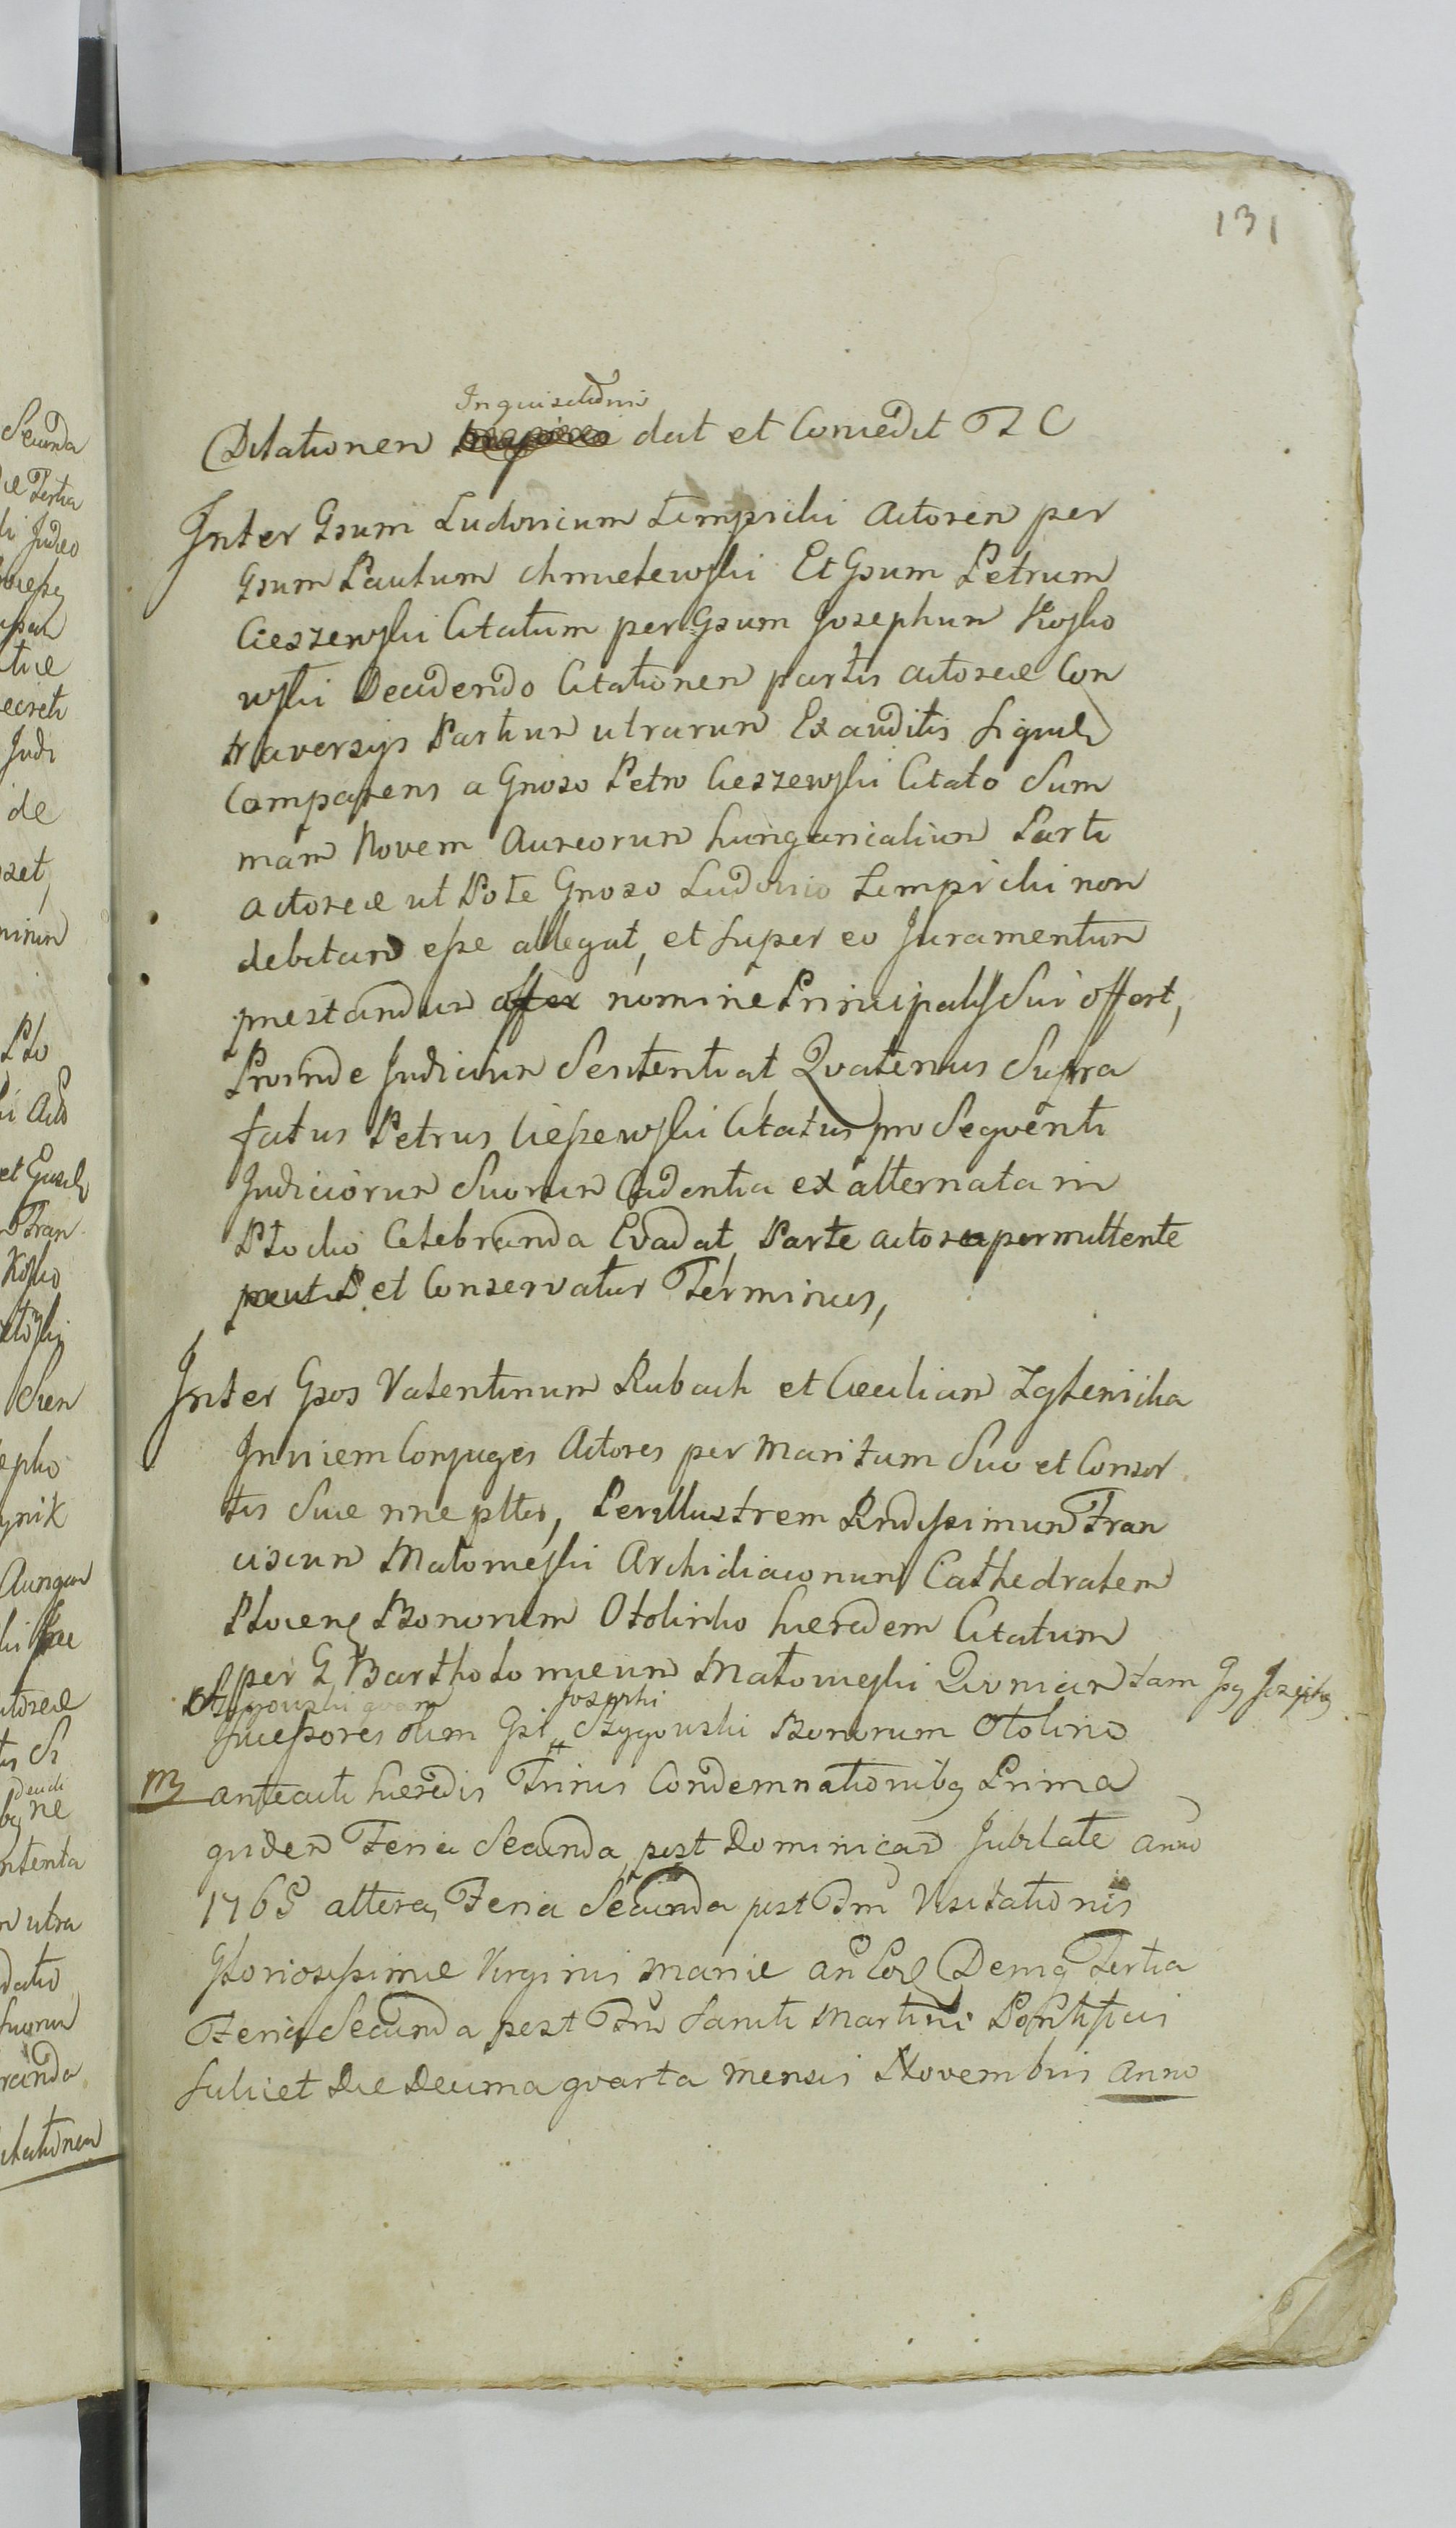 131
Inquisitionis
Dilationem dat et Concedit T C
Inter Gsum Ludovicum Lempicki Actorem per
Gsum Paulum Chmielewski Et Gsum Petrum
Cieszewski Citatum per Gsum Josephum Kosko
wski Decidendo Citationem partis actoreæ Con
traversys Partium utrarum Exauditis Siquide
Comparens a Gnoso Petro Cieszewski Citato Sum
mam Novem Aureorum hungaricalium Parti
actoreæ ut Pote Gnoso Ludovico Lempicki non
debitam esse allegat, et super eo Juramentum
præstandum nomine Principalis Sui offert,
Proinde Judicium Sententiat Qvatenus Supra
fatus Petrus Ciessewski Citatus pro Seqventi
Judiciorum Suorum Cadentia ex alternata in
Plocko Celebranda Evadat, Parte actorea permittente
et Conservatur Terminus,
Inter Gsos Valentinum Rubach et Cæcilian Zglenicka
Invicem Conjuges Actores per Maritum Suo et Consor
tis Suæ nne pltes, Perillustrem Rndissimum Fran
ciscum Malowieski Archidiaconum Cathedralem
Plocens Bonorum Otolinko hæredem Citatum
per G Bartholomæum Malowieski Qvoniam tam Gsq Josephq
Szygowski qvam Josephi
Sucessores olim Gsi Szygowski Bonorum Otolino
m anteacti hæredis Trinis Condemnationibq Prima
qvidem Feria Secunda post Dominicam Jubilate anno
1765 altera, Feria Secunda post Ftm Visitationis
Gloriosissimæ Virginis Mariæ an Eod Demq Tertia
Feria Secunda post Ftm Sancti Martini Pontificis
scilicet Die Decima qvarta Mensis Novembris anno